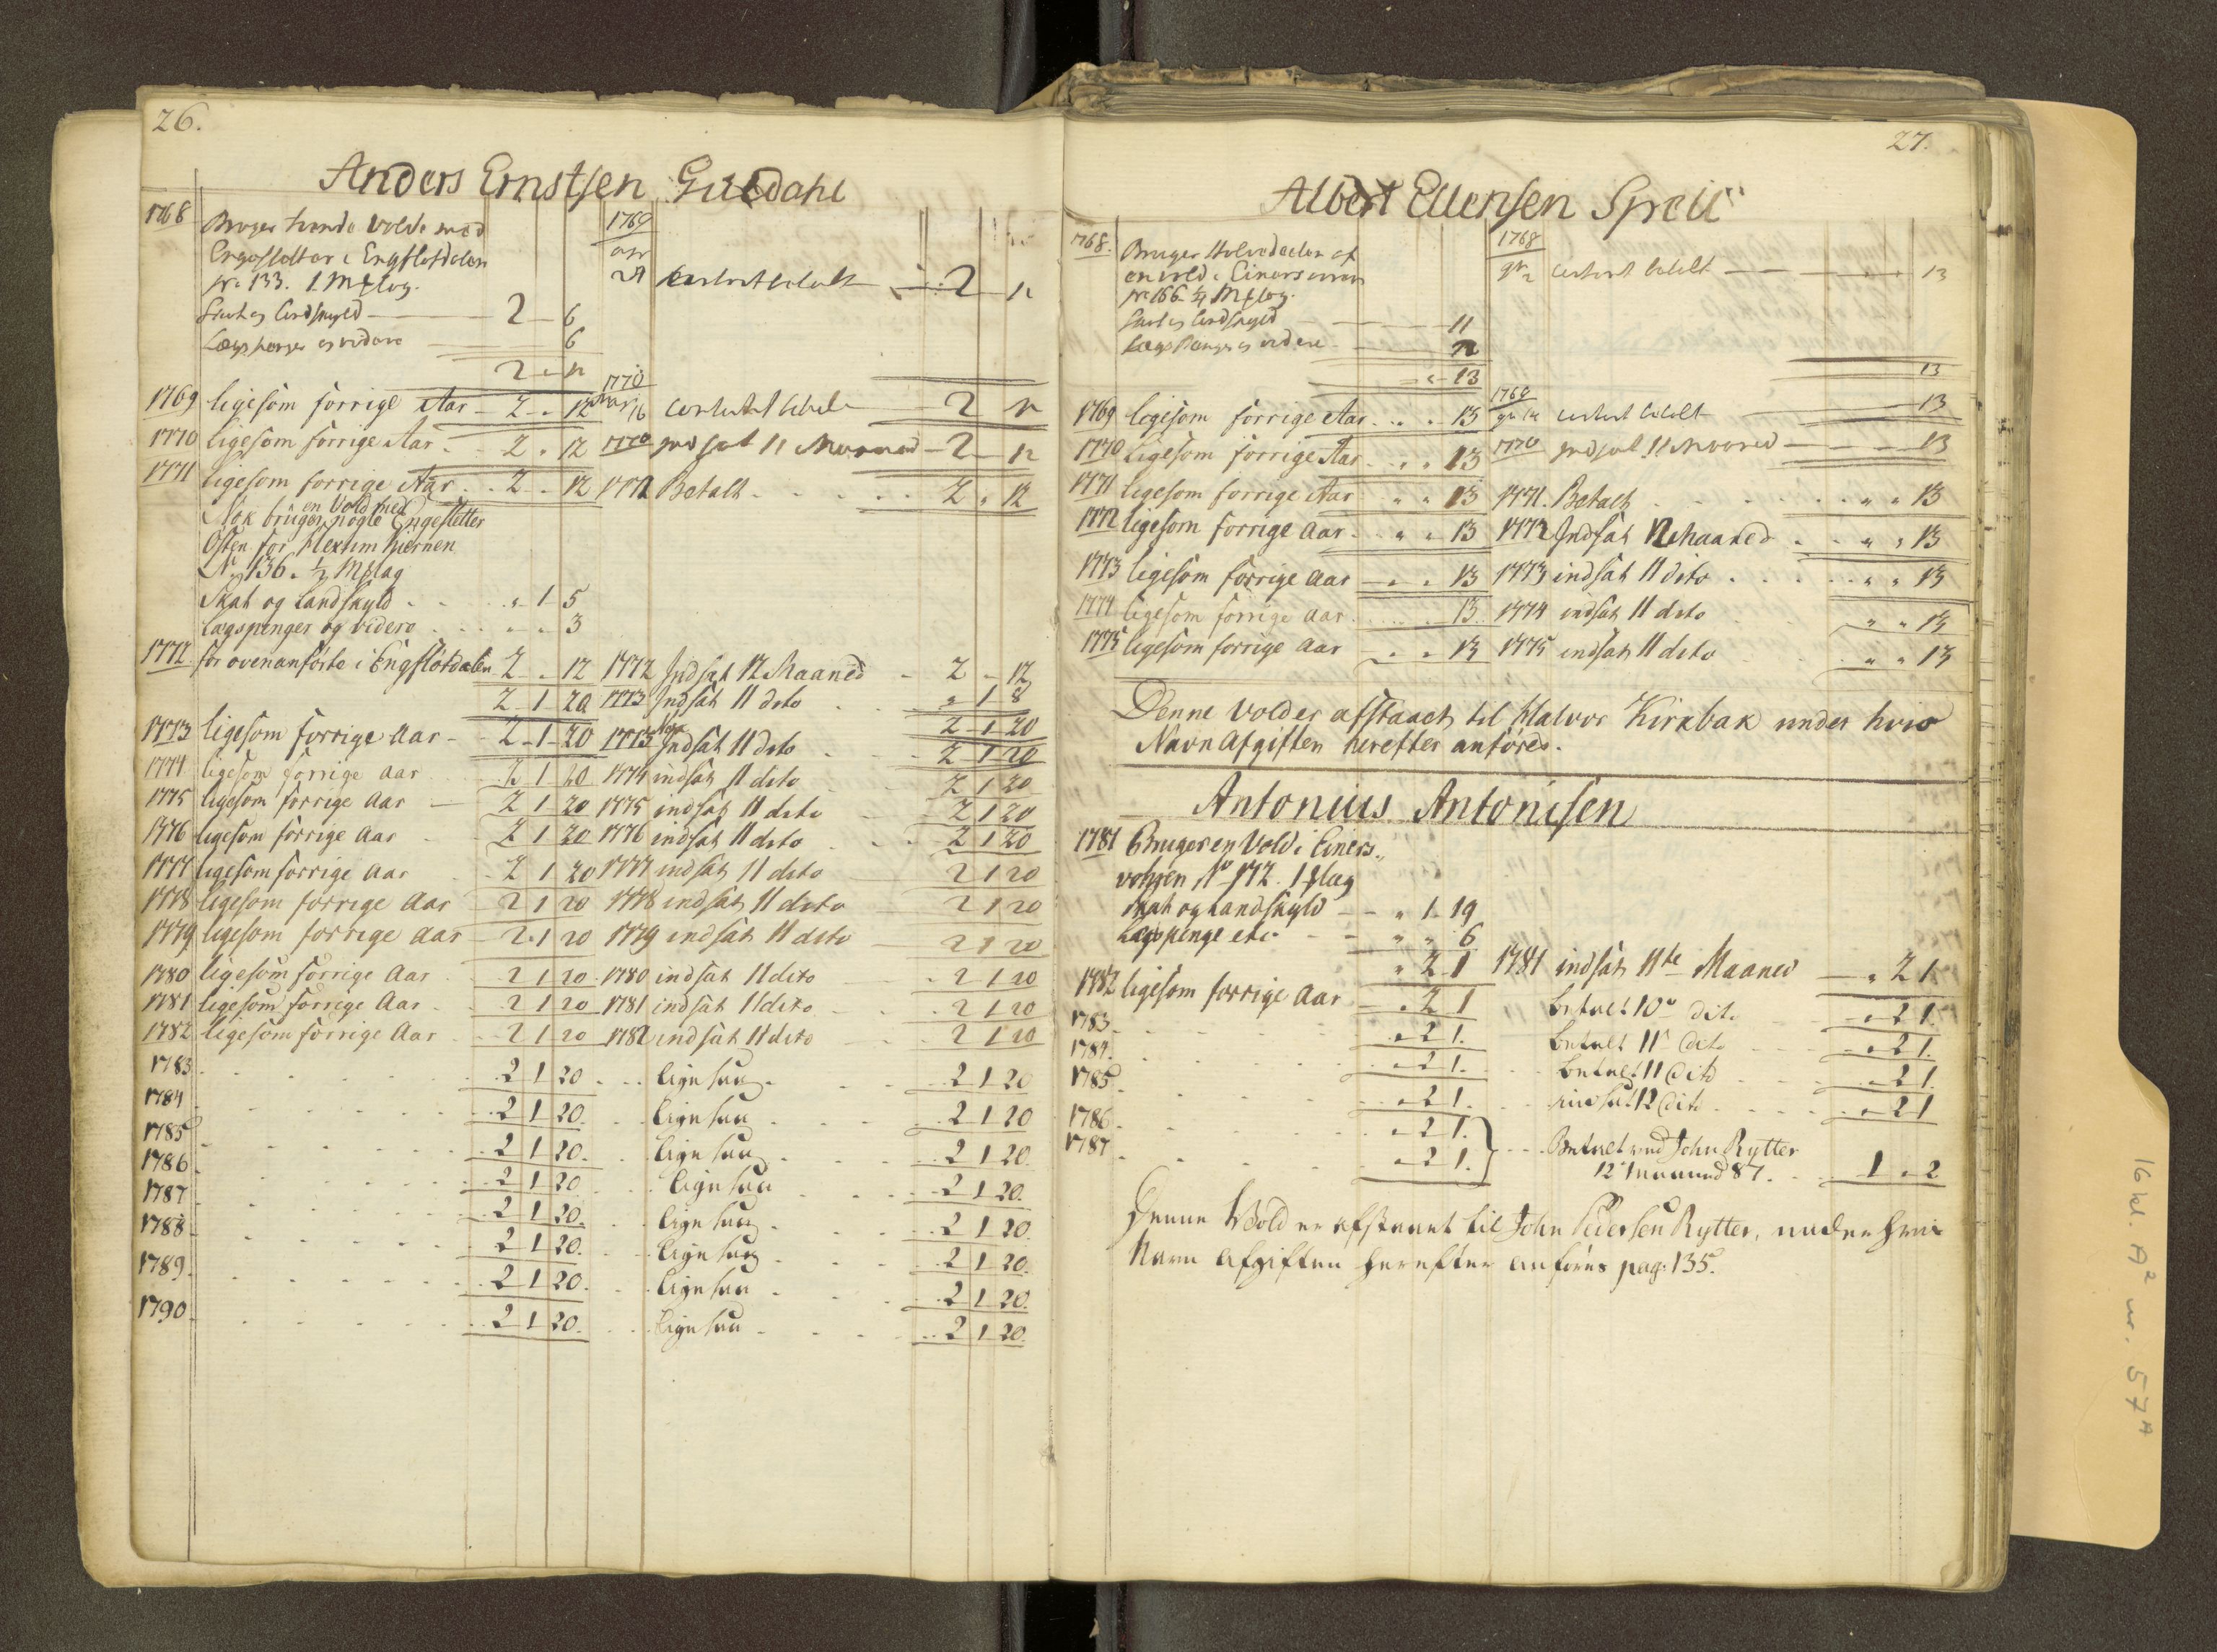 26.
Anders Ernstsen Guldahl
1768 Bruger tvende Volde med
Engesletter i Engslotdalen
No 133. 1 Mslag.
Skat og Landskyld — 2 — 6
Lægspenger og videre — 6
2 " 12
1769
apr
29 Contant betalt — 2 — 12
1769 ligesom forrige Aar — 2 " 12
1770
16 Contant betalt — 2 12
1770 ligesom forrige Aar — 2 " 12
1770 indsat 11 Maaned — 2 — 12
1771 ligesom forrige Aar 2 " 12
1771 Betalt 2 " 12
Nok bruger en Vold med nogle Engesletter
Østen for
No 136. ½ Mslag
Skat og Landskyld " 1 5
lægspenger og videre " " 3
1772 for ovenanførte i Engslotdalen 2 " 12
1772 Indsat 12 Maaned 2 " 12
2 1 20
1773 Indsat 11 dito " 1 8
2 1 20
1773 ligesom forrige Aar 2 1 20
1773 Indsat 11 dito 2 1 20
1774 ligesom forrige Aar 2 1 20 1774 indsat 11 dito 2 1 20
1775 ligesom forrige Aar 2 1 20 1775 indsat 11 dito 2 1 20
1776 ligesom forrige Aar 2 1 20 1776 indsat 11 dito 2 1 20
1777 ligesom forrige Aar 2 1 20 1777 indsat 11 dito 2 1 20
1778 ligesom forrige Aar 2 1 20 1778 indsat 11 dito 2 1 20
1779 ligesom forrige Aar 2 1 20 1779 indsat 11 dito 2 1 20
1780 ligesom forrige Aar 2 1 20 1780 indsat 11 dito 2 1 20
1781 ligesom forrige Aar 2 1 20 1781 indsat 11 dito 2 1 20
1782 ligesom forrige Aar 2 1 20 1782 indsat 11 dito 2 1 20
1783 2 1 20 ligesaa 2 1 20
1784 2 1 20 ligesaa 2 1 20
1785 2 1 20 ligesaa 2 1 20
1786 2 1 20 ligesaa 2 1 20
1787 2 1 20 ligesaa 2 1 20
1788 2 1 20 ligesaa 2 1 20
1789 2 1 20 ligesaa 2 1 20
1790 2 1 20 ligesaa 2 1 20
27.
Albert Ellensen
1768. Bruger Halvedeelen af
en vold i Einersvoren
No 166 ¼ Mslag.
Skat og Landskyld — 11
Lægs Penger og videre — 2
" 13
1768
Contant betalt — 13
13
1769 ligesom forrige Aar " " 13
Contant betalt — 13
1770 ligesom forrige Aar " " 13 1770 indsat 11 Maaned — 13
1771 ligesom forrige Aar " " 13 1771. Betalt " " 13
1772 ligesom forrige Aar " " 13 1772 Indsat 12 Maaned " " 13
1773 ligesom forrige Aar " " 13 1773 indsat 11 dito " " 13
1774 ligesom forrige Aar 13 1774 indsat 11 dito " " 13
1775 ligesom forrige Aar " " 13 1775 indsat 11 dito " " 13
Denne Vold er afstaaet til Halvor Kirkbak under hvis
Navn Afgiften herefter anføres.
Antonius Antonisen
1781 Bruger en Vold i Einers
vohren No 172. 1 slag
Skat og Landskyld " 1 19
Lægspenge etc " " 6
" 2 1 1781 indsat 11te Maaned " 2 1
1782 ligesom forrige Aar " 2 1 betalt 10 dito " 2 1
1783 " 2 1. betalt 11 dito " 2 1.
1784. " 2 1. betalt 11 dito " 2 1.
1785 " 2 1. indsat 12 dito " 2 1
1786 " 2 1.
1787 " 2 1. Betalt ved John Rytter
12 Maaned 87. 1 " 2
Denne Vold er afstaaet til John Pedersen Rytter, under hvis
Navn Afgiften herefter anføres pag. 135.
16 kl. A² nr. 57 A